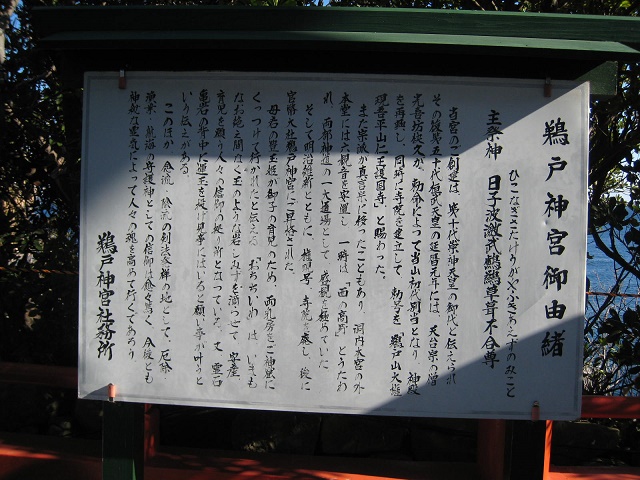 鵜戸神宮御由緒
ひこなぎさたけうがやふきあえずのみこと
主祭神 日子波瀲武鸕鷀草葺不合尊
当宮のご創建は、第十代崇神天皇の御代と伝えられ
その後第五十代桓武天皇の延暦元年には、天台宗の僧
光喜坊快久が、勅命によって当山初代別当となり、神殿
を再興し、同時に寺院を建立して、勅号を「鵜戸山大権
現吾平山仁王護国寺」と賜わった。
また宗派が真言宗に移ったこともあり、洞内本宮の外
本堂には六観音を安置し、一時は「西の高野」とうたわ
れ、両部神道の一大道場として、盛観を極めていた
そして明治維新とともに、権現号、寺院を廃し、後に
官幣大社鵜戸神宮に昇格された。
母君の豊玉姫が御子の育児のため、両乳房をご神窟に
くっつけて行かれたと伝える「おちちいわ」は、いまも
なお絶え間なく玉のような岩しみずを滴らせて、安産
育児を願う人々の信仰の拠り所となっている。又、霊石
亀石の背中に運玉を投げ見事にはいると願い事が叶うと
いう伝えがある。
このほか、念流、陰流の剣法発祥の地として、厄除
漁業、航海の守護神としての信仰は愈々篤く、今後とも
神秘な霊気によって人々の魂を高めて行くであろう
鵜戸神宮社務所